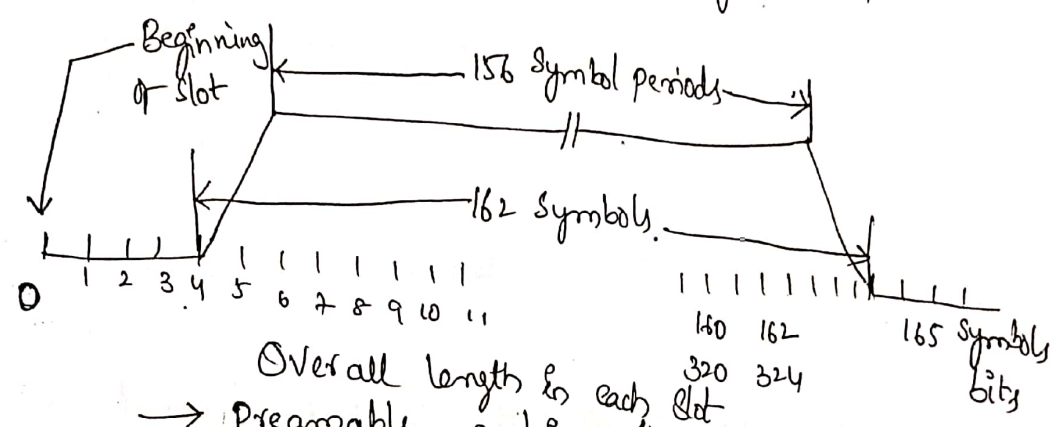 Beginning
of slot
156 Symbol periods
162 Symbols.
0 1 2 3 4 5 6 7 8 9 10 11
160 162 165 Symbols
320 324 bits
Overall length in each slot
→